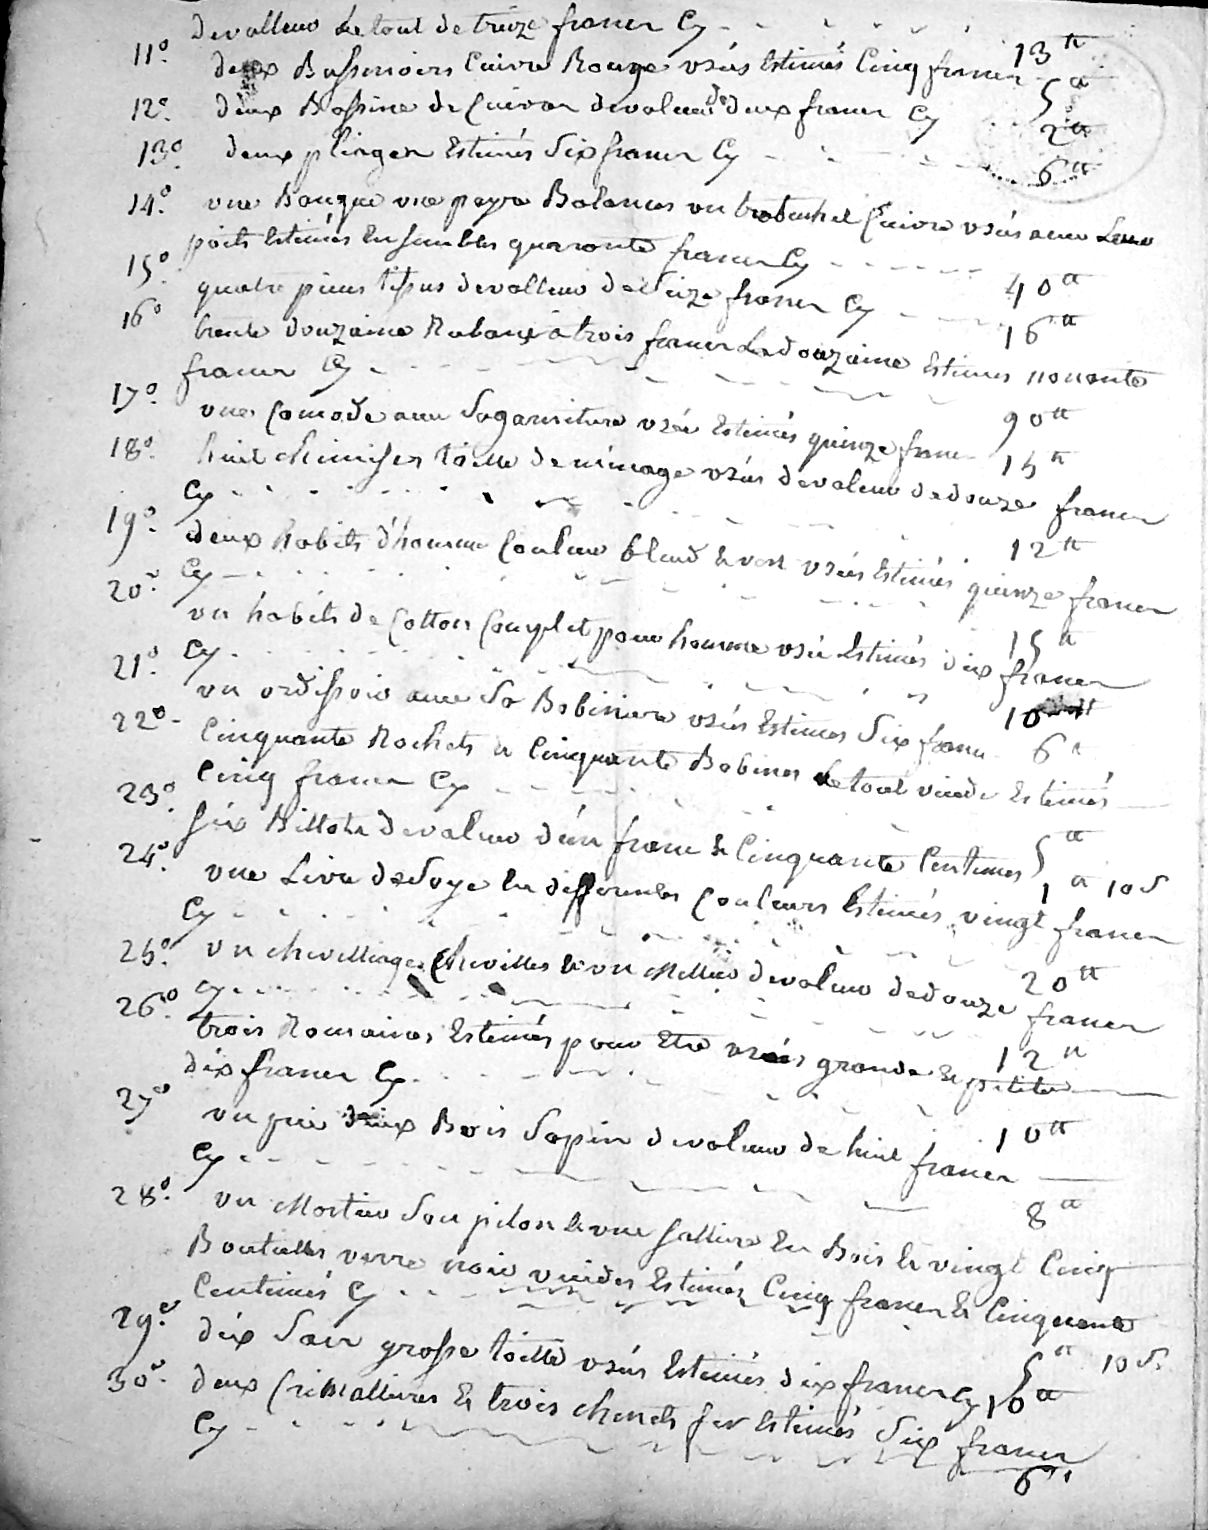 de valleur Le tout de treize francs Cy - - - - 13 ₶
11° deux Bassinoires Cuivre Rouge usés Estimés Cinq francs 5 ₶
12° deux Bassine de Cuivre de valeur de deux francs Cy 2 ₶
13° deux plinger Estimés Six francs Cy - - - 6 ₶
14° une Banque une payre Balances un trabuchet Cuivre usés avec Leur
poits Estimés Ensembles quaronte francs Cy - - - - - 40 ₶
15° quatre pieces tissus de valleur de Seize francs Cy - - - 16 ₶
16° trente douzaine Rubans à trois francs La douzaine Estimés nonante
francs Cy - - - - - 90 ₶
17° une Comode avec Sa garniture usée Estimés quinze francs 15 ₶
18° huit chemises toille de ménage usés de valeur de douze francs
Cy - - - - - 12 ₶
19° deux habits d'homme Couleur bleud & vert usés Estimés quinze francs
Cy - - - - - 15 ₶
20° un habits de Cotton Complet pour homme usé Estimés dix francs
Cy - - - - - 10
21° un ordissoir avec Sa Bobiniere usés Estimés Six francs 6 ₶
22° Cinquante Rochets & Cinquante Bobines Le tout vuide Estimés
Cinq francs Cy - - - - - 5 ₶
23° Six Billots de valeur d'un franc & Cinquante Centimes 1 ₶ 10 s
24° une Livre de Soye En differentes Couleurs Estimés vingt francs
Cy - - - - - 20 ₶
25° un chevillinge Chevilles & un Mettier de valeur de douze francs
Cy - - - - - 12 ₶
26° trois Romaines Estimés pour Etre usés grande & petite
dix francs Cy - - - - - 10 ₶
27° un Bois Sapin de valeur de huit francs
Cy - - - - - 8 ₶
28° un Mortier Son pilon & une Salliere En Bois & vingt Cinq
Bouteilles verre noir vuides Estimés Cinq francs & Cinquante
Centimes Cy - - - - - 5 ₶ 10 s
29° dix Sacs grosse toille usés Estimés dix francs Cy 10 ₶
30° deux Crimallieres & trois chenets fer Estimés Six francs
Cy - - - - - 6 ₶